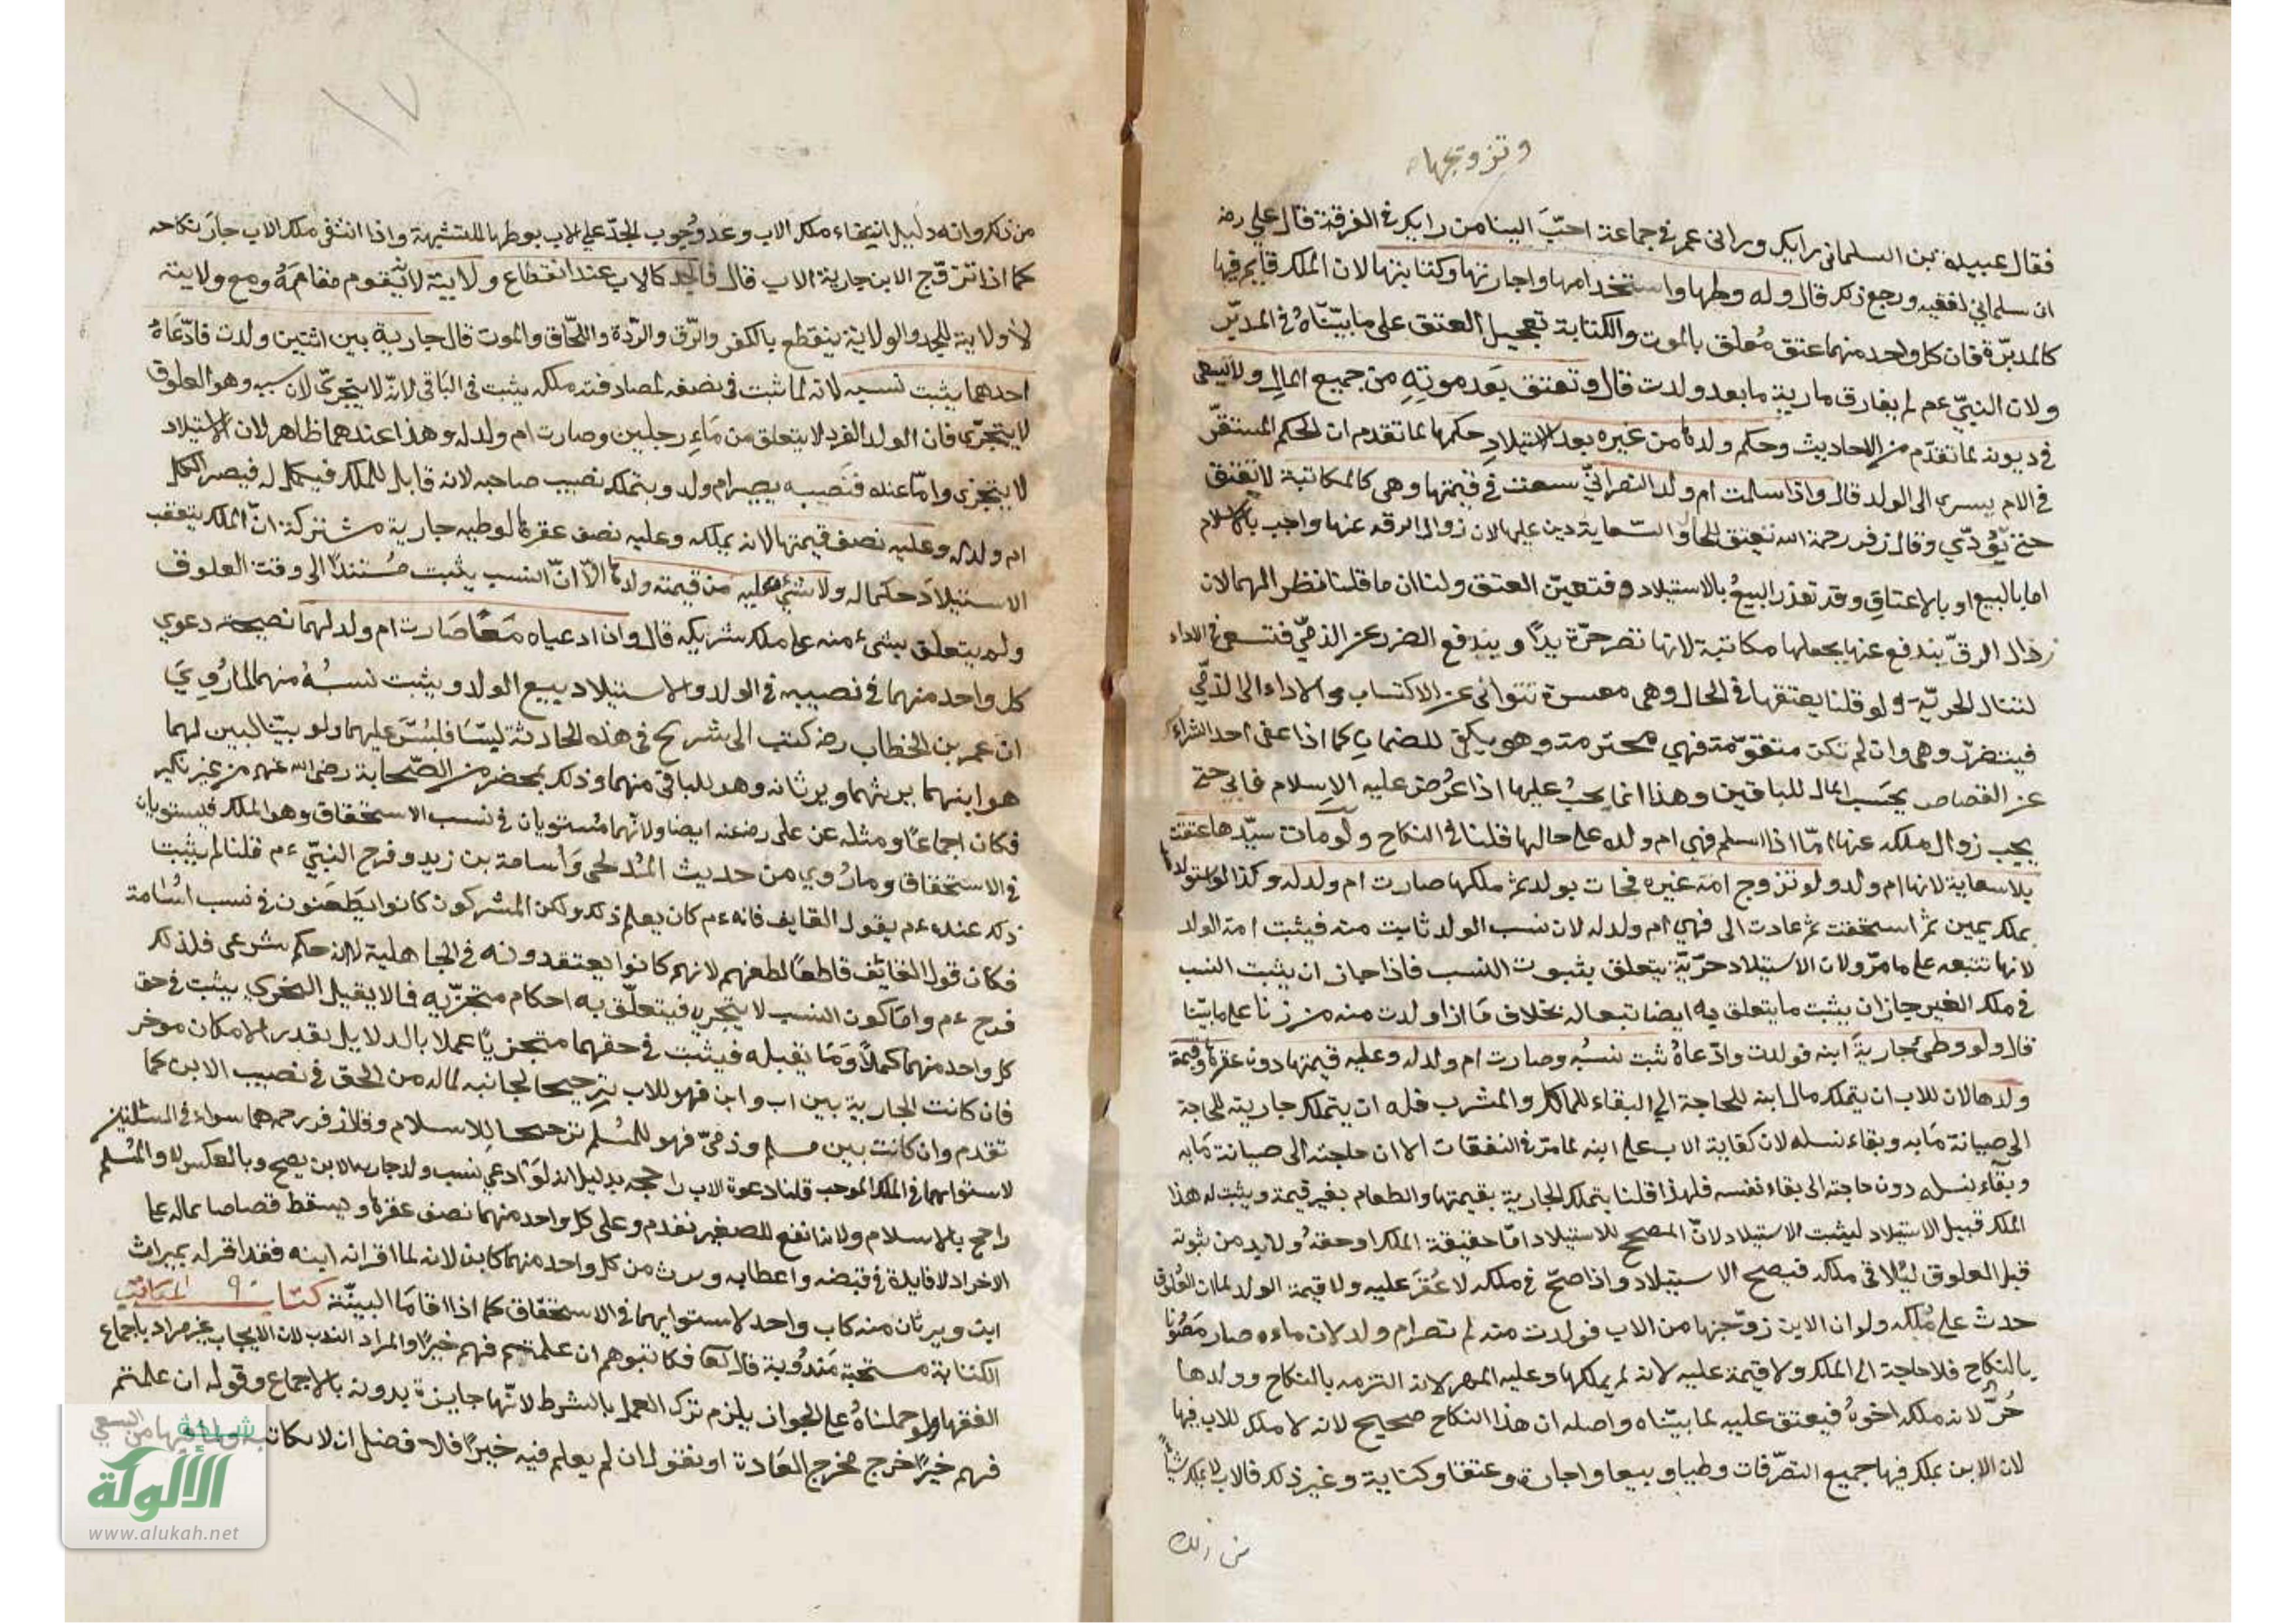 وتزويجها
فقال عبيدة بن السلماني رايك وراى عمر في جماعة احبّ الينا من رايك في الفرقة فقال علي رضه
ان سلماني لفقيه ورجع ذكر قال وله وطيها واستخدامها واجارتها وكتابتها لان الملك قايم فيها
كالمدبّرة فان كل واحد منهما عتق مُعلق بالموت والكتابة تعجيل العتق على ما بيّنّاهُ في المدبّر
ولان النبيّ عم لم يفارق مارية ما بعد ولدت قال وتعتق بَعد موتِهِ من جميع المالِ ولا تسعى
في ديونه لما تقدّم من الاحاديث وحكم ولدها من غيره بعد الاستيلادِ حكمها لما تقدم ان الحكم المستقرّ
في الام يسري الى الولد قال واذا سلمت ام ولد النصرانيّ سعت في قيمتها وهي كالمكاتبة لا تعتق
حتى تُؤدّي وقال زفر رحمة الله تعتق للحال والسّعاية دين عليها لان زوال الرق عنها واجب بالاسلام
اما بالبيع او بالاعتاقِ وقد تعذر البيعُ بالاستيلاد فتعيّن العتق ولنا ان ما قلنا نظر لهما لان
ذال الرقّ يندفع عنها بجعلها مكاتبة لانها تصر حرّة يدًا ويندفع الضرر عن الذميّ فتسعى في الاداء
لتنال الحريّة ولو قلنا يعتقها في الحال وهي معسرة تتوانى عن الاكتساب والاداء الى الذمّي
فيتضرّر وهي وان لم تكن متقوّمة فهي محترمة وهو يكفي للضمانِ كما اذا عفى احد الشركاء
عن القصاص يجَب المال للباقين وهذا انما يجبُ عليها اذا عرُض عليه الاِسلام فابي حتى
يجب زوال ملكه عنها امّا اذا اسلم فهي ام ولده على حالها قلنا في النكاح ولو مات سيّدها عتقت
بلا سعاية لانها ام ولد ولو تزوج امة غيره فجات بولد ثم ملكها صارت ام ولد له وكذا لو استولدها
بملك يمين ثم استحقت ثم عادت الى فهي ام ولد له لان نسب الولد ثابت منه فيثبت امة الولد
لانها تتبعه على ما مرّ ولان الاستيلاد حرّيّة يتعلق بثبوت النسب فاذا جاز ان يثبت النسب
في ملك الغير جاز ان يثبت ما يتعلق به ايضا تبعا له بخلاف مَا اذا ولدت منه من زنا على ما بيّنا
قال ولو وطئ جاريَة ابنه فولدت وادّعاهُ ثبت نسبُه وصارت ام ولد له وعليه قيمتها دون عقرها وقيمة
ولدها لان للاب ان يتملك مال ابنه للحاجة الي البقاء للماكل والمشرب فله ان يتملك جاريته للحاجة
الى صيانة مَابه وبقاء نسله لان كفاية الاب على ابنه لما مرّ في النفقات الا ان حاجته الى صيانة مَابه
وبقاء نسله دون حاجته الى بقاء نفسه فلهذا قلنا يتملك الجارية بقيمتها والطعام بغير قيمة ويثبت له هذا
الملك قبيل الاستيلاد ليثبت الاستيلاد لانّ المصحح للاستيلاد امّا حقيقة الملك او حقهُ ولا بد من ثبوته
قبل العلوق ليُلاقى ملكه فيصح الاستيلاد واذا صحّ في ملكه لا عُقرَ عليه ولا قيمة الولد لما ان العُلوق
حدث على مُلكه ولو ان الابن زوّجها من الاب فولدت منه لم تصر ام ولد لان ماءه صار مَصُونا
بالنكاح فلا حاجة الى الملك ولا قيمة عليه لانه لم يملكها وعليه المهر لانه التزمه بالنكاح وولدها
حُرّ لانه ملكه اخوهُ فيعتق عليه لما بيّنّاه واصله ان هذا النكاح صحيح لانه لا ملك للاب فيها
لان الابن يملك فيها جميع التصرّفات وطيا وبيعا واجارة وعتقا وكتابة وغير ذلك فالاب لا يملك شيئا
من ذلك
١٧
من ذكر وانه دليل انتفاء ملك الاب وعد وُجوب الحدّ على الاب بوطيها للشبهة واذا انتفى ملك الاب جازَ نكاحه
كما اذا تزوّج الابن جارية الاب قال فالجد كالاب عند انقطاع ولايته لانّه يقوم مقامَهُ ومع ولايته
لا ولاية للجد والولاية ينقطع بالكفر والرّق والرّدة واللّحاق والموت قال جارية بين اثنين ولدت فادّعَاهُ
احدهما يثبت نسبه لانه لما ثبت في نصفه لمصادفته ملكه يثبت في البَاقي لانّه لا يتجزّي لان سببه وهو العلوق
لا يتجزّي فان الولد الفرد لا يتعلق من مَاءِ رجلين وصارت ام ولد له وهذا عندهما ظاهر لان الاستيلاد
لا يتجزي وامّا عنده فنَصيبه يصير ام ولد ويتملك نصيب صاحبه لانه قابل للملك فيكمل له فيصر الكل
ام ولد له وعليه نصف قيمتها لانه يملكه وعليه نصف عقرها لوطيه جارية مشتركة انّ الملك يتعقب
الاستيلادَ حكما له ولا شيء عليه من قيمته ولدها الاّ انّ النسب يثبت مُستندًا الى وقت العلوق
ولم يتعلق بشئ منه على ملك شريكه قال وان ادعياه مَعًا صَارت ام ولد لهما نصيحة دعوي
كل واحد منهما في نصيبه في الولد والاستيلاد يبيع الولد ويثبت نسبُهُ منهما لما رُوِيَ
ان عمر بن الخطاب رضه كتب الى شريح في هذه الحادثة لبّسَا فلبّسَ عليهما ولو بيّنا لبين لهما
هو ابنهما يرثهما ويرثانه وهو للباقى منهما وذلك بمحضر من الصّحابة رضى الله عنهم من غير نكير
فكان اجماعًا ومثله عن على رضعنه ايضا ولانّهما مُستويان في نسب الاستحقاق وهو الملك فيستويان
في الاستحقاق وما رُوي من حديث المُدلجى وَاُسامة بن زيد وفرح النبيّ عم قلنا لم يثبت
ذكر عنده عم بقول القايف فانه عم كان يعلم ذلك ولكن المشركون كانوا يَطعَنون في نسب اُسَامة
فكان قول القائف قاطعًا لطعنهم لانهم كانوا يعتقدونه في الجاهلية لا لانه حكم شرعى فلذلك
فرح عم وامّا كون النسب لا يتجزي فيتعلّق به احكام متجزّيه فالا يقبل التجزي يثبت في حق
كل واحد منهما كملًا وَمَا يقبله فيثبت في حقهما متجزيًا عملا بالدلايل بقدر الامكان موخر
فان كانت الجارية بين اب وابن فهو للاب ترجيحا لجانبه لماله من الحق في نصيب الابن كما
تقدم وان كانت بين مسلم وذميّ فهو للمُسلم ترجيحا للاسلام وقال زفر رحمه هما سواء في المسئلتين
لاستوايهما في الملك الموجب قلنا دعوة الاب راجحه بدليل انه لوَ ادعي نسب ولد جارية الابن يصح وبالعكس لا والمُسلم
راجح بالاسلام ولانه انفع للصغير نقدم وعلى كل واحد منهما نصف عقرها ويسقط قصاصا بماله على
الاخر اد لا فايدة في قبضه واعطايه ويرث من كل واحد منهما كابن لانه لما اقر انه ابنه فقد اقر له بميراث
ابن ويرثان منه كاب واحد لاستوايهما في الاستحقاق كما اذا اقامَا البينّة كتاب المكاتب
الكتابة مستحبة مَندُوبة قال تعا فكاتبوهم ان علمتم فيهم خيرًا والمراد الندب لان الايجاب غير مراد باجماع
الفقهاء ولو حملناهُ على الجواز يلزم ترك العمل بالشرط لانّها جايزة بدونه بالاجماع وقوله ان علمتم
فيهم خيرًا خرج مخرج العَادة او نقول ان لم يعلم فيه خيرًا فالافضل ان لا يكاتبه ولما فيها من السعي
شبكة
الألوكة
www.alukah.net